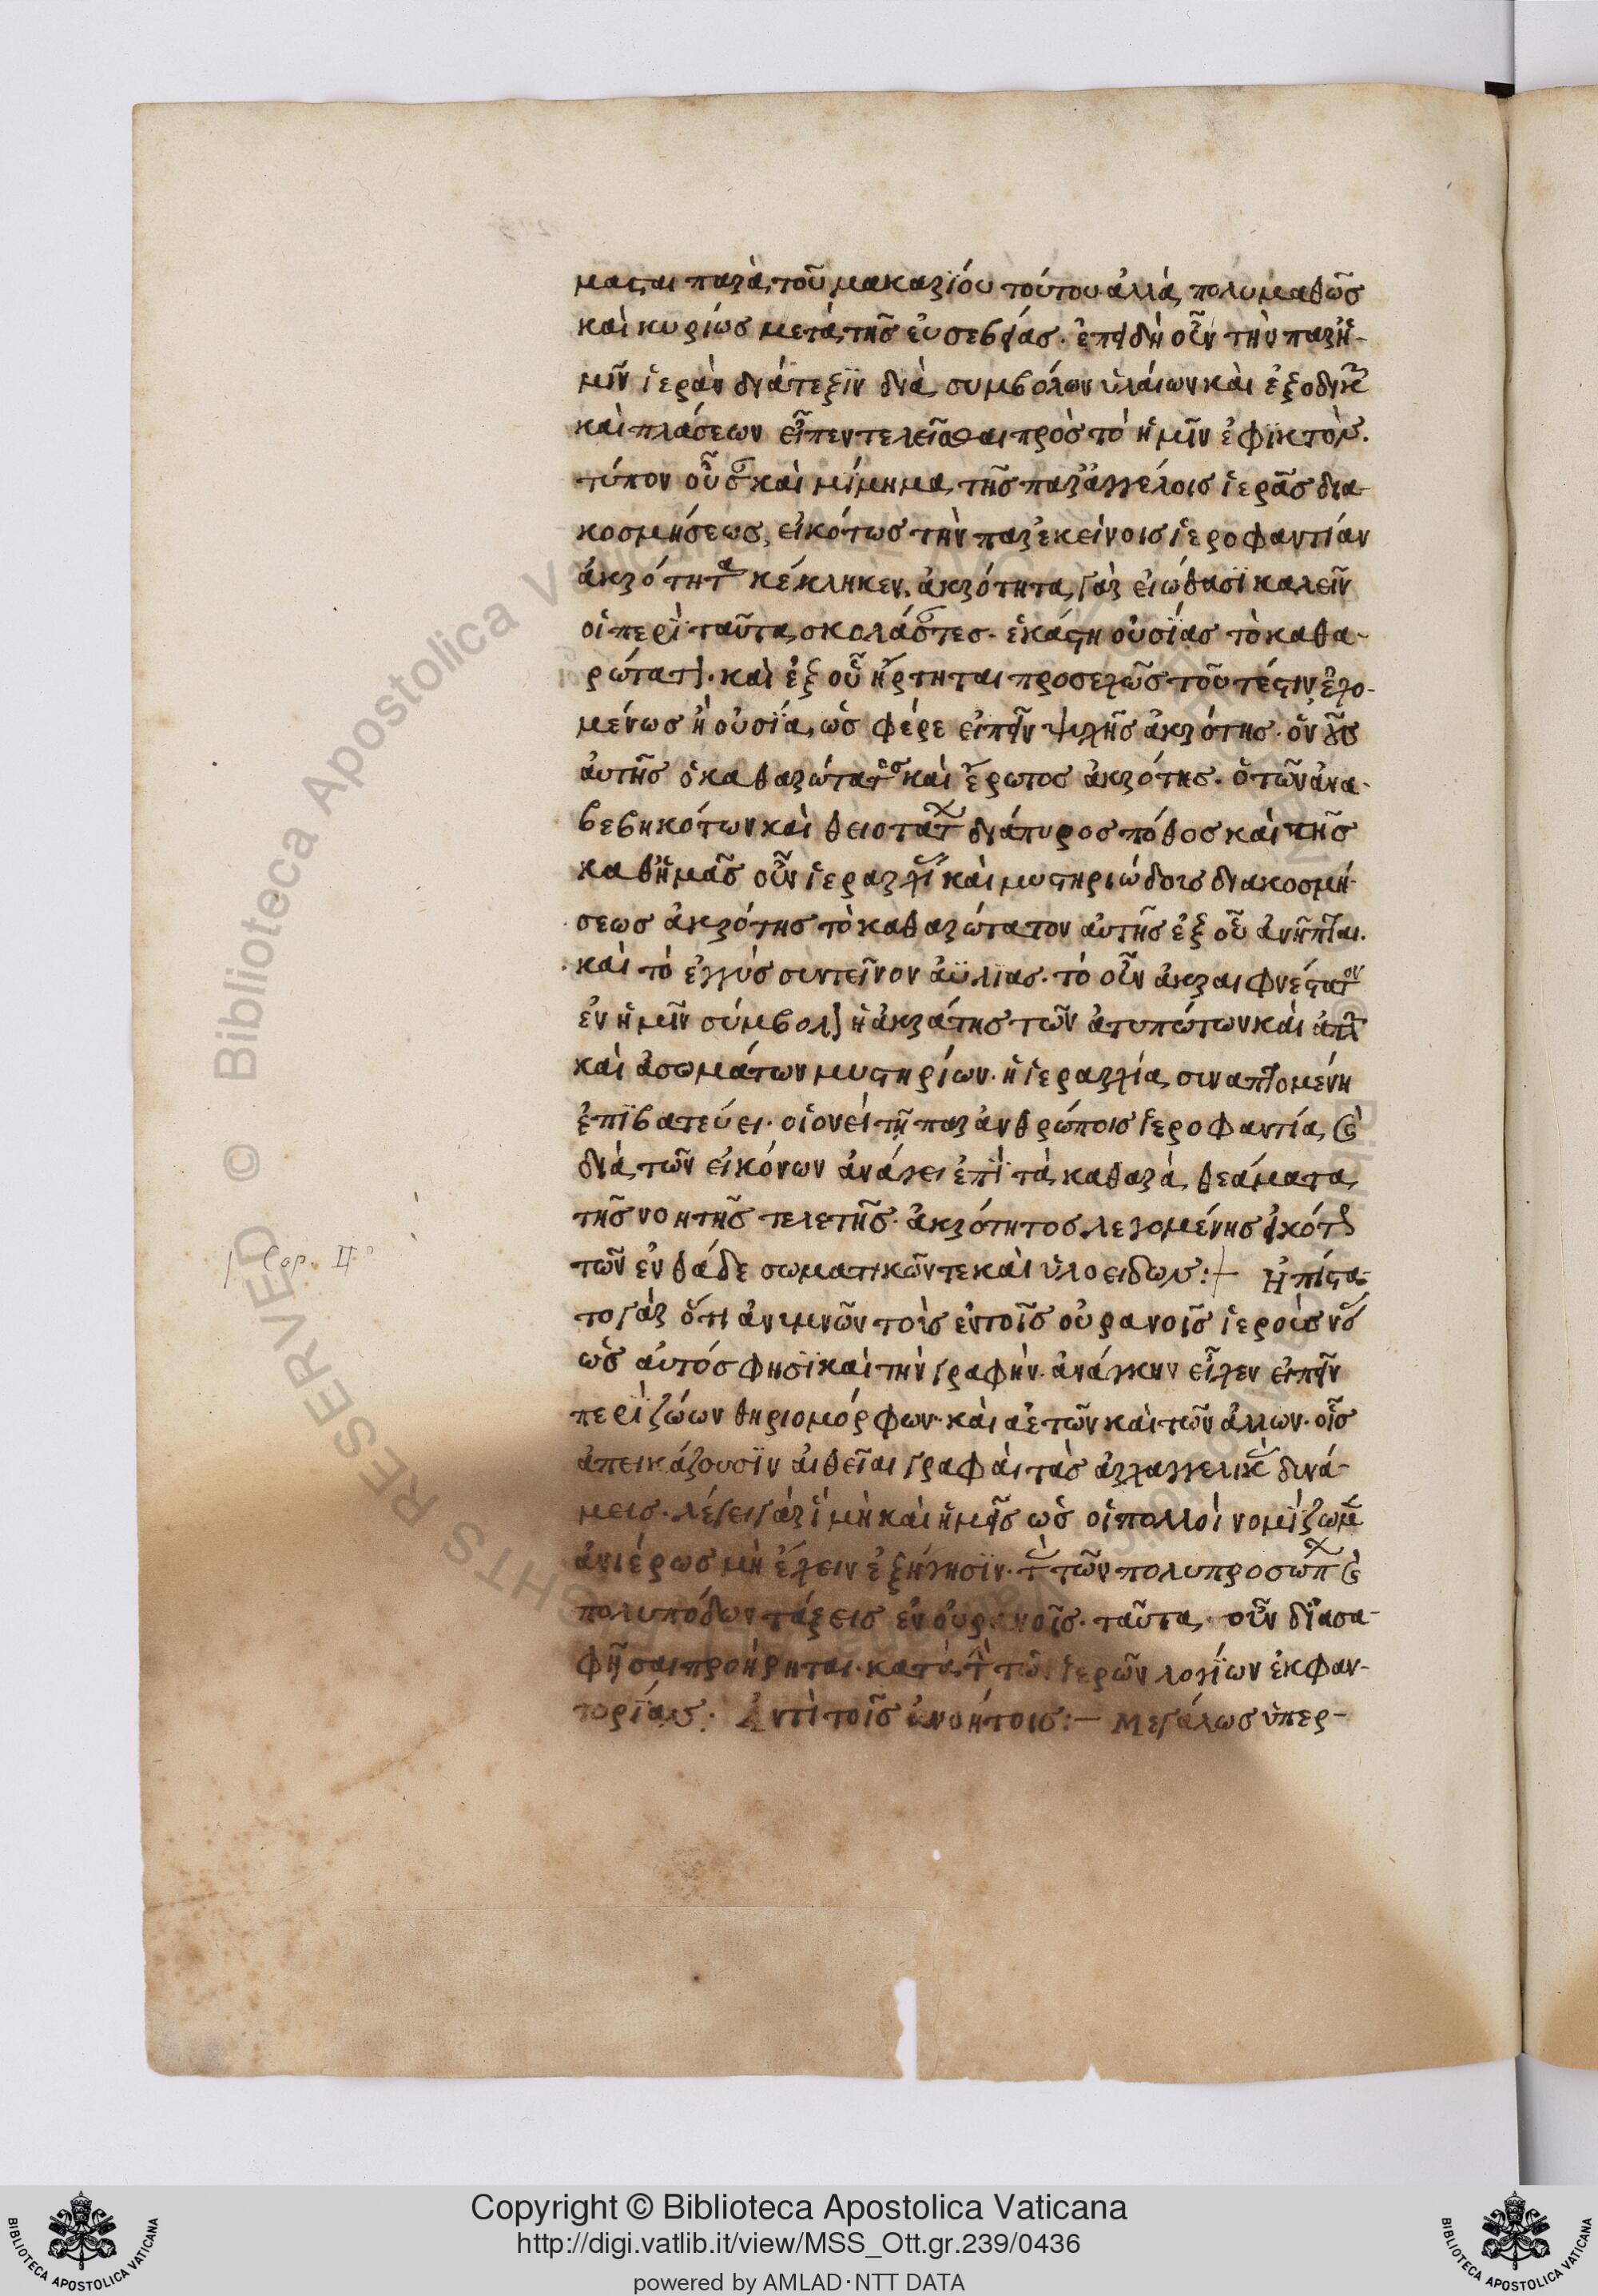 μασται παρὰ τοῦ μακαρίου τούτου ἀλλὰ πολυμαθῶς
καὶ κυρίως μετὰ τῆς εὐσεβείας. ἐπειδὴ οὖν τὴν παρ' ἡ-
μῖν ἱερὰν διάτεξϊν διὰ συμβόλων ὑλαίων καὶ ἐξοδικ
καὶ πλάσεων εἶπεν τελεῖσθαι πρὸς τὸ ἡμῖν ἐφϊκτὸν.
τύπον οὖσαν καὶ μίμημα τῆς παρ' ἀγγέλοις ἱερᾶς δια-
κοσμήσεως, εἰκότως τὴν παρ' ἐκείνοις ἱεροφαντίαν
ἀκρότητα κέκληκεν. ἀκρότητα γὰρ εἰώθασϊ καλεῖν
οἱ περὶ ταῦτα σχολάσαντες. ἑκάστη οὐσίας τὸ καθα-
ρώτατον. καὶ ἐξ οὗ ἤρτηται προσεχῶς τοῦτέστιν ἐχο-
μένως ἡ οὐσία, ὡς φέρε εἰπεῖν ψυχῆς ἀκρότης. ὁ νοῦς
αὐτῆς ὁ καθαρώτατος καὶ ἔρωτος ἀκρότης. ὁ τῶν ἀνα-
βεβηκότων καὶ θειοτάτων διάπυρος πόθος καὶ τῆς
καθ' ἡμᾶς οὖν ἱεραρχικῆς καὶ μυστηριώδους διακοσμή-
σεως ἀκρότης τὸ καθαρώτατον αὐτῆς ἐξ οὗ ἀνῆπται.
καὶ τὸ ἐγγὺς συντεῖνον ἀϋλίας. τὸ οὖν ἀκραιφνέστατον
ἐν ἡμῖν σύμβολον ἡ ἀκρότης τῶν ἀτυπώτων καὶ ἀπλ
καὶ ἀσωμάτων μυστηρίων. ἡ ἱεραρχία συναπτομένη
ἐπϊβατεύει. οἱονεὶ τῇ παρ' ἀνθρώποις ἱεροφαντία καὶ
διὰ τῶν εἰκόνων ἀνάγει ἐπὶ τὰ καθαρὰ θεάματα
τῆς νοητῆς τελετῆς. ἀκρότητος λεγομένης εἰκότως
τῶν ἐνθάδε σωματικῶν τε καὶ ὑλοειδων:+ Ἠπίστα-
το γὰρ ὅτι ἀνυμνῶν τοὺς ἐν τοῖς οὐρανοῖς ἱεροὺς νόας
ὡς αὐτός φησϊ καὶ τὴν γραφὴν. ἀνάγκην εἶχεν εἰπεῖν
περὶ ζώων θηριομόρφων. καὶ ἀετῶν καὶ τῶν ἄλλων. οἷς
ἀπεικάζουσϊν αἱ θεῖαι γραφαὶ τὰς ἀρχαγγελικὰς δυνά-
μεις. λέγει γὰρ ἵ μὴ καὶ ἡμεῖς ὡς οἱ πολλοὶ νομίζωμεν
ἀνιέρως μὴ ἔχειν ἐξήγησϊν. τὰς τῶν πολυπροσώπων καὶ
πολυπόδων τάξεις ἐν οὐρανοῖς. ταῦτα οὖν διασα-
φῆσαι προῄρηται. κατὰ τὴν τῶν ἱερῶν λογΐων ἐκφαν-
τορΐας: Ἀντὶ τοῖς ἀνοήτοις:— Μεγάλως ὑπερ-
Cap. II
Copyright © Biblioteca Apostolica Vaticana
http://digi.vatlib.it/view/MSS_Ott.gr.239/0436
powered by AMLAD·NTT DATA